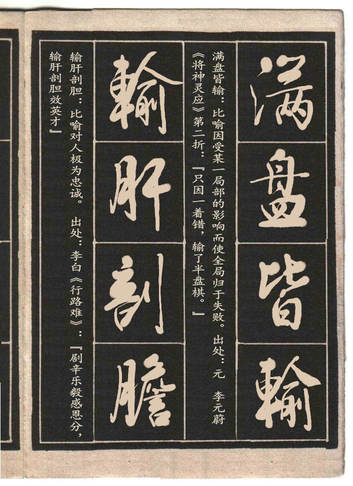 满盘皆输
满盘皆输：比喻因受某一局部的影响而使全局归于失败。出处：元 李元蔚
《将神灵应》第二折：『只因一着错，输了半盘棋。』
输肝剖胆
输肝剖胆：比喻对人极为忠诚。出处：李白《行路难》：『剧辛乐毅感恩分，
输肝剖胆效英才』